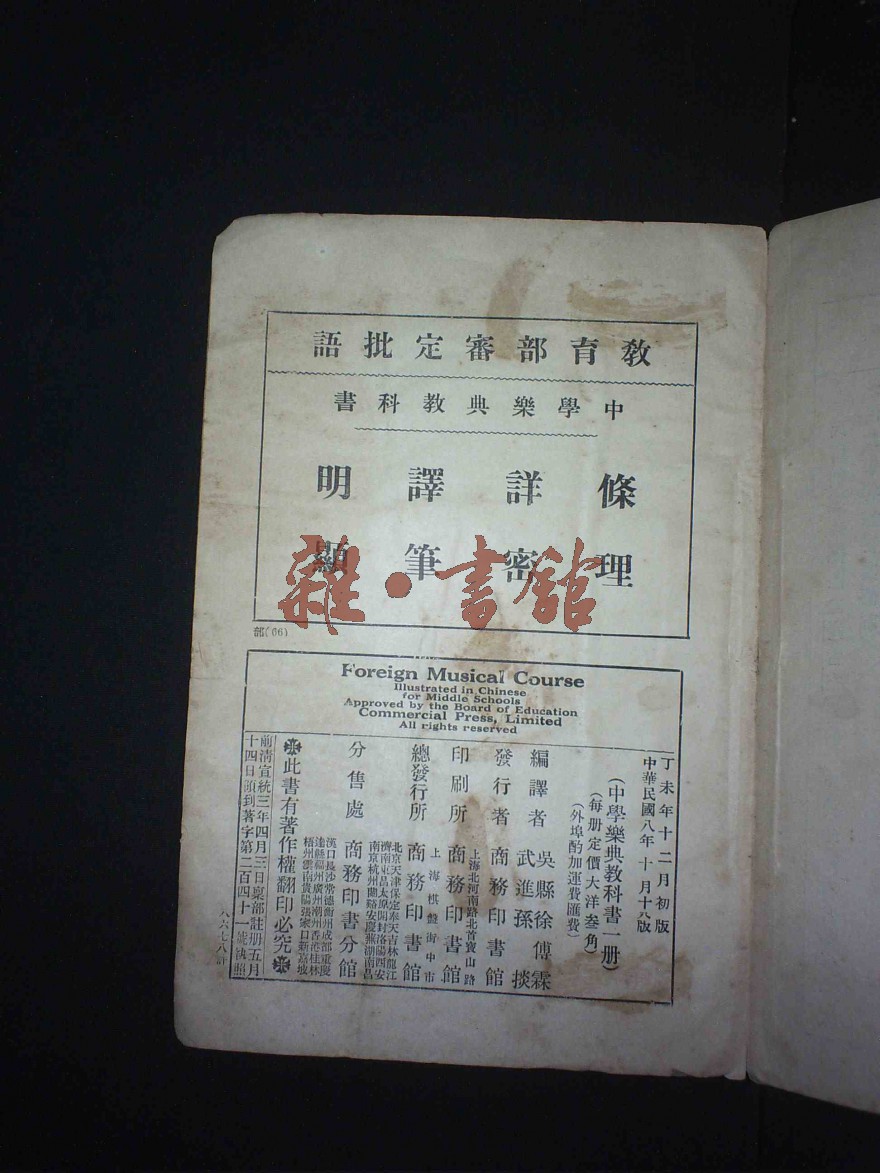 教育部審定批語
中學樂典教科書
條理
詳密
譯筆
明顯
雜·書館
部(66)
Foreign Musical Course
Illustrated in Chinese
for Middle Schools
Approved by the Board of Education
Commercial Press, Limited
All rights reserved
丁未年十二月初版
中華民國八年十月十八版
(中學樂典教科書一册)
(每册定價大洋叁角)
(外埠酌加運費匯費)
編譯者 吳縣徐傅霖
武進孫掞
發行者 商務印書館
上海北河南路北首寶山路
印刷所 商務印書館
上海棋盤街中市
總發行所 商務印書館
北京天津保定奉天吉林龍江
濟南東昌太原開封洛陽西安
南京杭州蘭谿安慶蕪湖南昌
分售處 商務印書分館
漢口長沙常德衡州成都重慶
達縣福州廣州潮州香港桂林
梧州雲南貴陽張家口新嘉坡
此書有著作權翻印必究
前清宣統三年四月三日稟部註册五月
十四日領到著字第二百四十一號執照